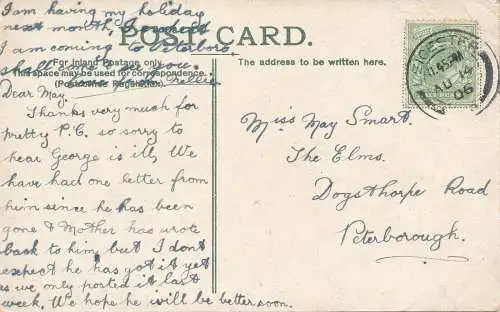 I am having my holiday
next month, I
I am coming to Peterboro
shall come & see you.
POST CARD.
For Inland Postage only.
This space may be used for correspondence.
(Post Office Regulation).
The address to be written here.
Dear May.
Thanks very much for
pretty P.C. so sorry to
hear George is ill, We
have had one letter from
him since he has been
gone & Mother has wrote
back to him but I don't
expect he has got it yet
as we only posted it last
week. We hope he will be better soon.
Miss May Smart.
The Elms.
Dogsthorpe Road
Peterborough.
LEICESTER
AU 14
06